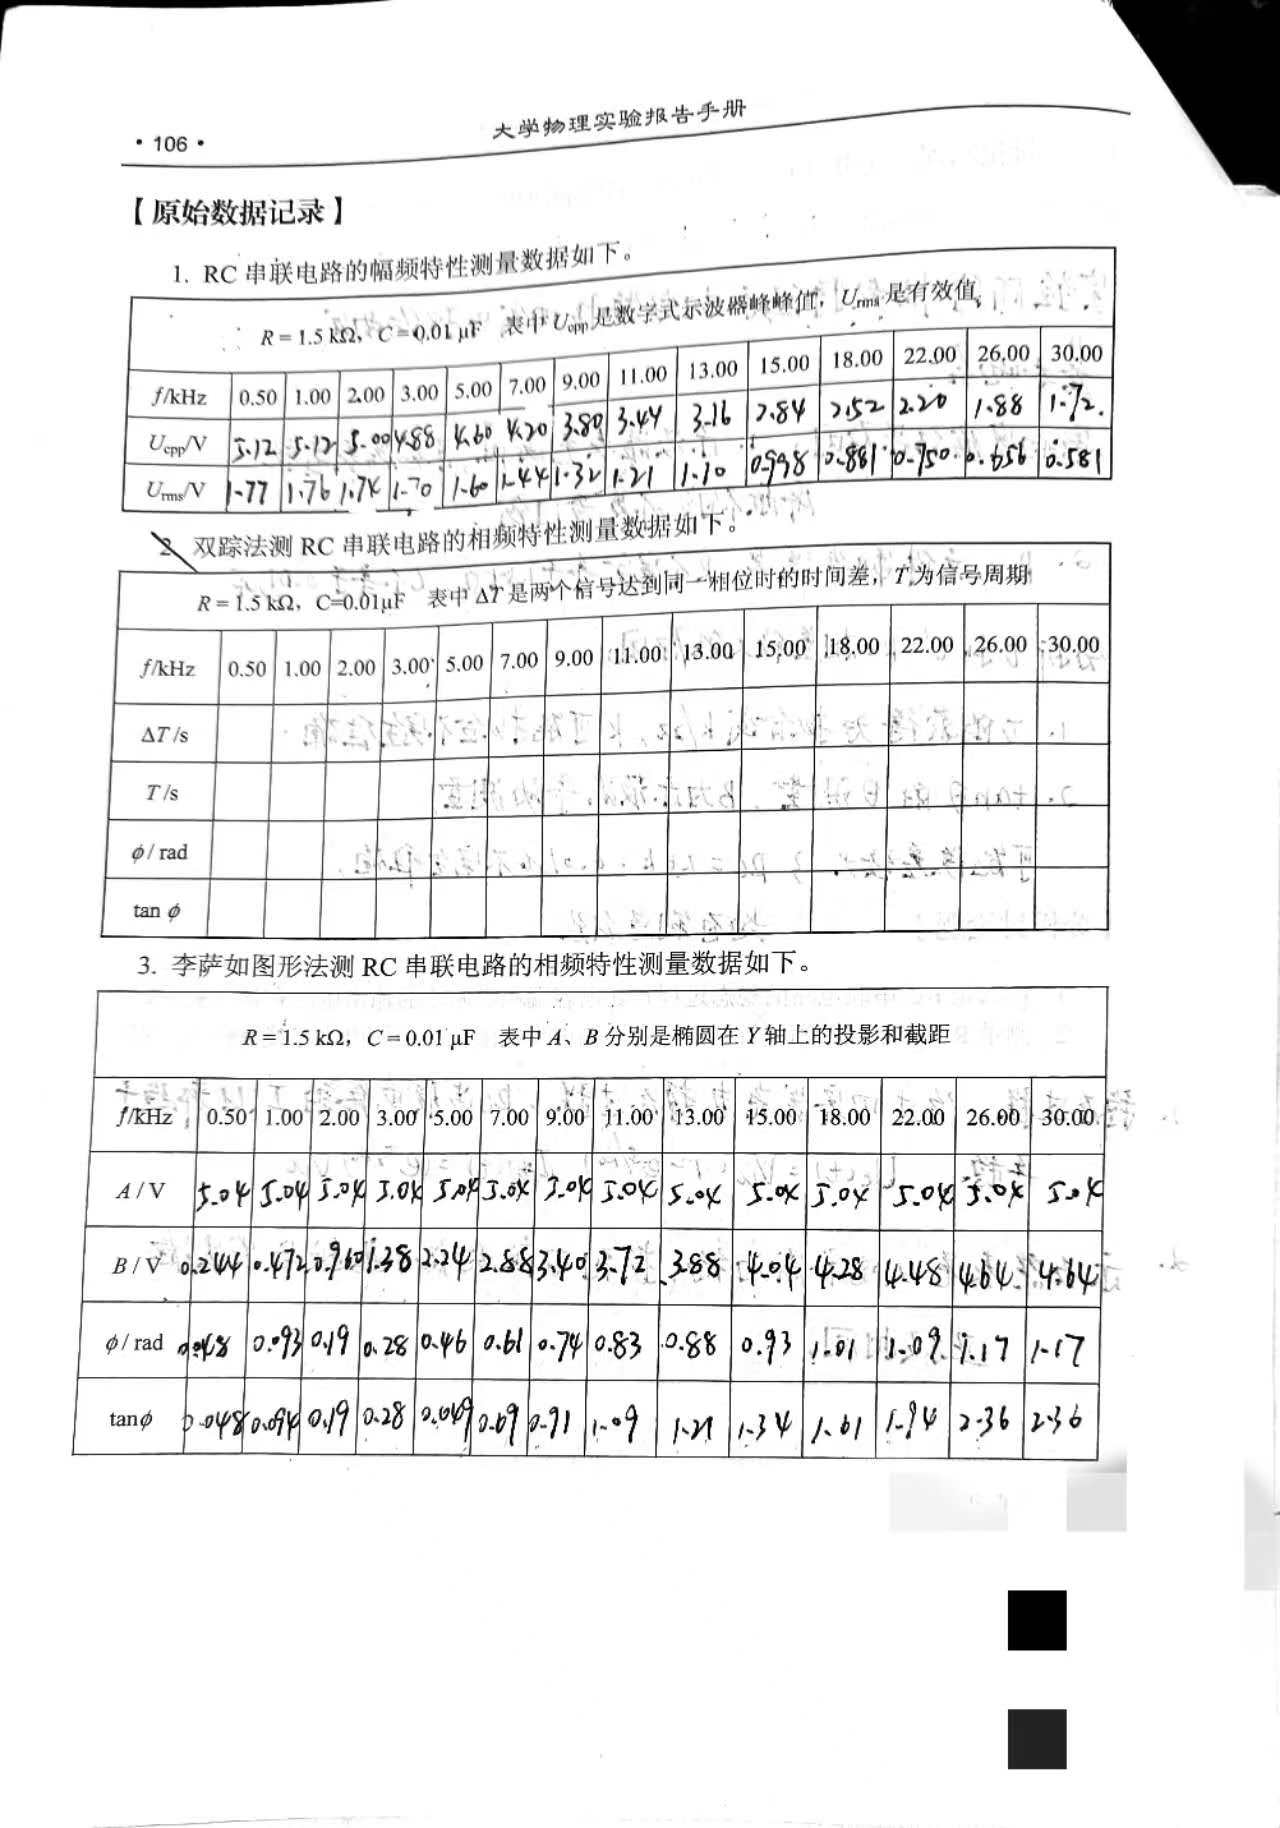 · 106 ·
大学物理实验报告手册
【原始数据记录】
1. RC 串联电路的幅频特性测量数据如下。
R = 1.5 kΩ, C = 0.01 μF 表中 Ucpp 是数字式示波器峰峰值, Urms 是有效值
f/kHz 0.50 1.00 2.00 3.00 5.00 7.00 9.00 11.00 13.00 15.00 18.00 22.00 26.00 30.00
Ucpp/V 5.12 5.12 5.00 4.88 4.60 4.20 3.80 3.44 3.16 2.84 2.52 2.20 1.88 1.72
Urms/V 1.77 1.76 1.74 1.70 1.60 1.44 1.32 1.21 1.10 0.998 0.881 0.750 0.656 0.581
2. 双踪法测 RC 串联电路的相频特性测量数据如下。
R = 1.5 kΩ, C=0.01μF 表中 ΔT 是两个信号达到同一相位时的时间差, T 为信号周期
f/kHz 0.50 1.00 2.00 3.00 5.00 7.00 9.00 11.00 13.00 15.00 18.00 22.00 26.00 30.00
ΔT /s
T /s
ϕ / rad
tan ϕ
3. 李萨如图形法测 RC 串联电路的相频特性测量数据如下。
R = 1.5 kΩ, C = 0.01 μF 表中 A、B 分别是椭圆在 Y 轴上的投影和截距
f/kHz 0.50 1.00 2.00 3.00 5.00 7.00 9.00 11.00 13.00 15.00 18.00 22.00 26.00 30.00
A / V 5.04 5.04 5.04 5.04 5.04 5.04 5.04 5.04 5.04 5.04 5.04 5.04 5.04 5.04
B / V 0.244 0.472 0.960 1.38 2.24 2.88 3.40 3.72 3.88 4.04 4.28 4.48 4.64 4.64
ϕ / rad 0.048 0.093 0.19 0.28 0.46 0.61 0.74 0.83 0.88 0.93 1.01 1.09 1.17 1.17
tanϕ 0.048 0.094 0.19 0.28 0.049 0.69 0.91 1.09 1.21 1.34 1.61 1.94 2.36 2.36